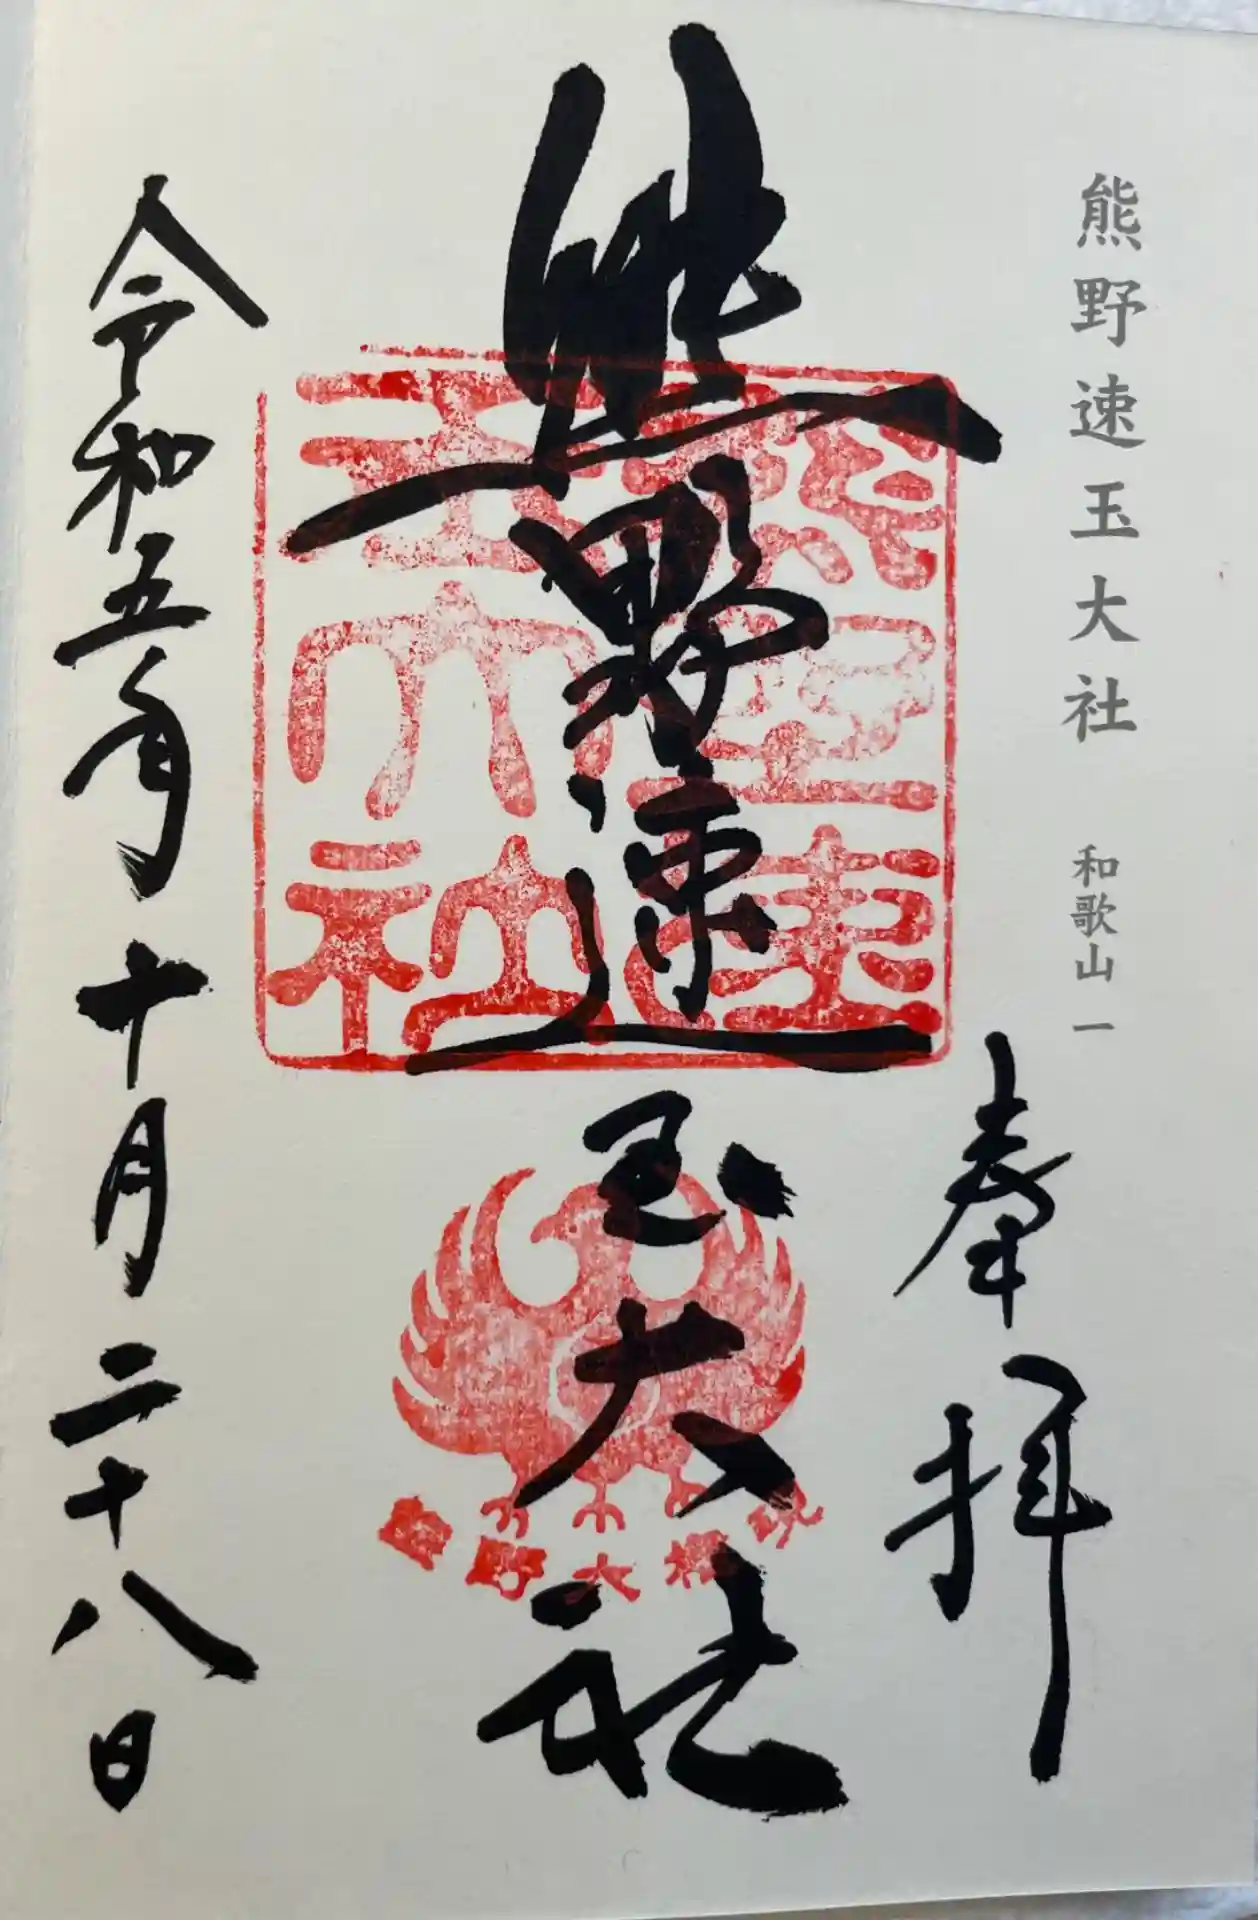 熊野速玉大社 和歌山一
奉拝
熊野速玉大社
熊野速
玉大社
熊野大権現
令和五年十月二十八日